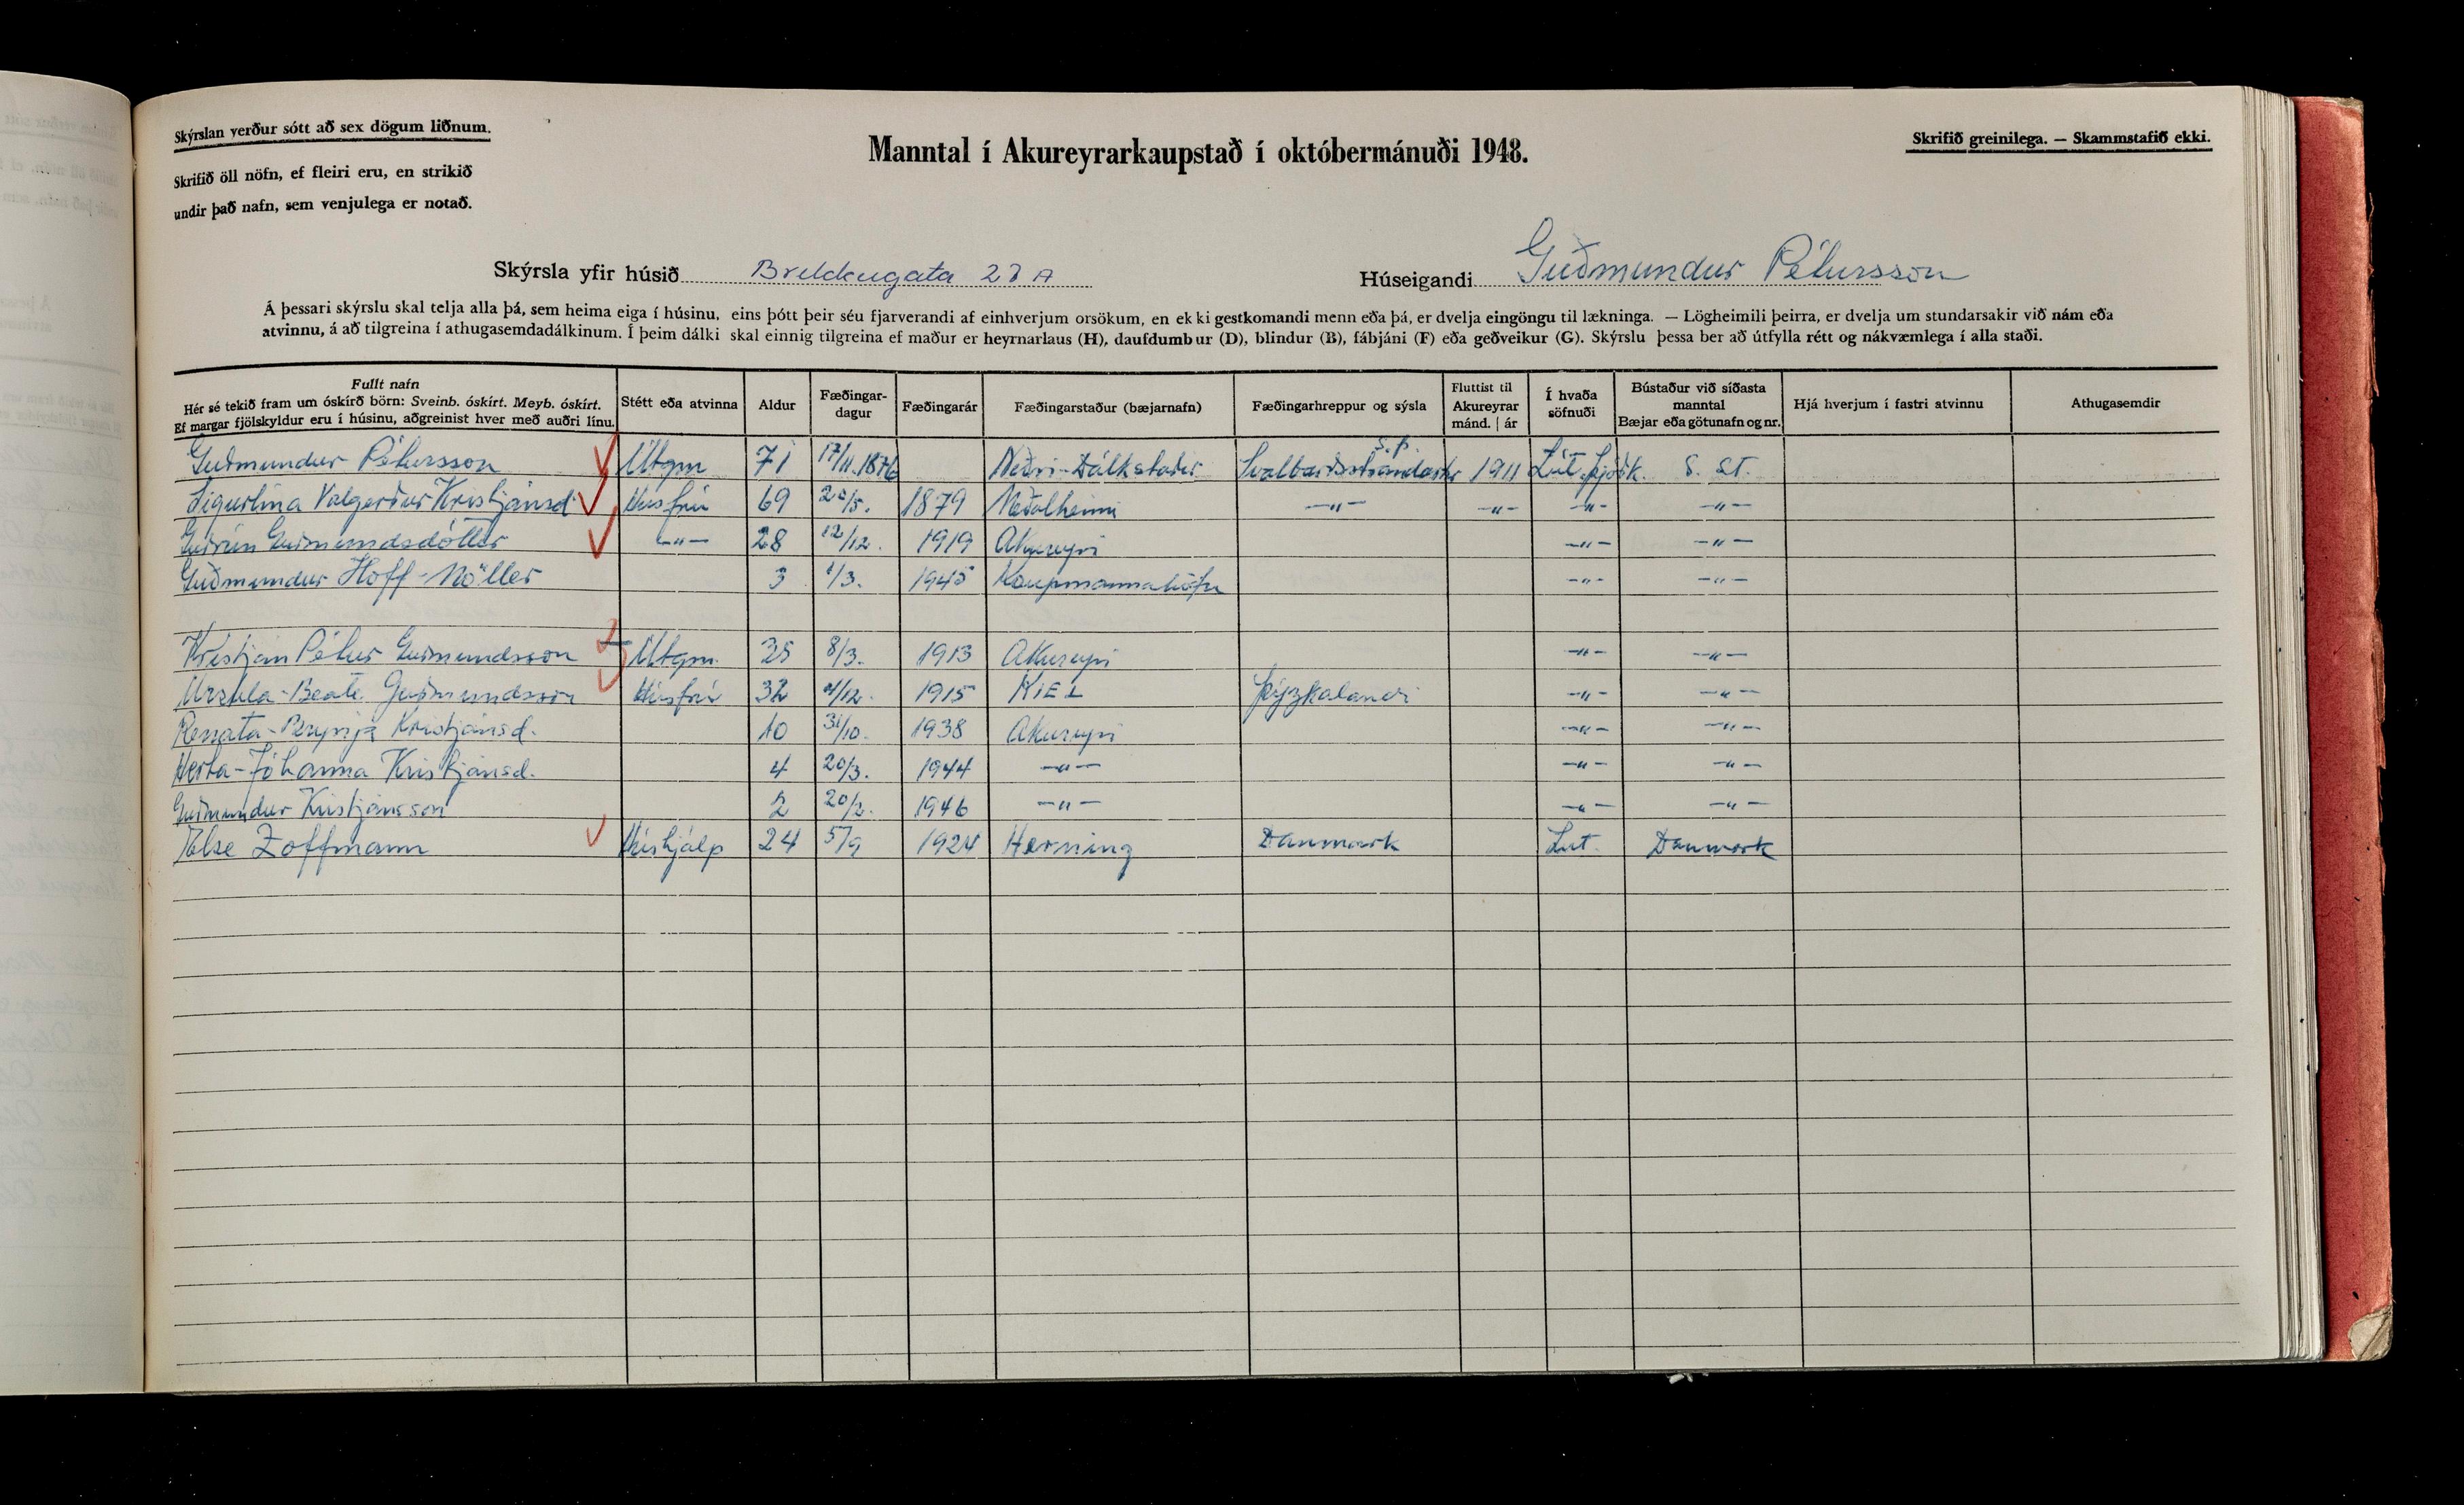 Skýrslan verður sótt að sex dögum liðnum.
Skrifið öll nöfn, ef fleiri eru, en strikið
undir það nafn, sem venjulega er notað.
Manntal í Akureyrarkaupstað í októbermánuði 1948.
Skrifið greinilega. — Skammstafið ekki.
Skýrsla yfir húsið Brekkugata 27 A Húseigandi Guðmundur Pétursson
Á þessari skýrslu skal telja alla þá, sem heima eiga í húsinu, eins þótt þeir séu fjarverandi af einhverjum orsökum, en ekki gestkomandi menn eða þá, er dvelja eingöngu til lækninga. — Lögheimili þeirra, er dvelja um stundarsakir við nám eða
atvinnu, á að tilgreina í athugasemdadálkinum. Í þeim dálki skal einnig tilgreina ef maður er heyrnarlaus (H), daufdumbur (D), blindur (B), fábjáni (F) eða geðveikur (G). Skýrslu þessa ber að útfylla rétt og nákvæmlega í alla staði.
Fullt nafn
Hér sé tekið fram um óskírð börn: Sveinb. óskírt. Meyb. óskírt.
Ef margar fjölskyldur eru í húsinu, aðgreinist hver með auðri línu.
Stétt eða atvinna
Aldur
Fæðingar-
dagur
Fæðingarár
Fæðingarstaður (bæjarnafn)
Fæðingarhreppur og sýsla
Fluttist til
Akureyrar
mánd. | ár
Í hvaða
söfnuði
Bústaður við síðasta
manntal
Bæjar eða götunafn og nr.
Hjá hverjum í fastri atvinnu
Athugasemdir
Guðmundur Pétursson Útgm 71 17/11.1876 Neðri-Dálkstaðir Svalbarðsstrandarhr S.Þ. 1911 Lút. þjóðk. S. ST.
Sigurlína Valgerður Kristjánsd. Húsfrú 69 20/5. 1879 Meðalheimi —"— —"— —"— —"—
Guðrún Guðmundsdóttir —"— 28 12/12. 1919 Akureyri —"— —"—
Guðmundur Hoff-Möller 3 1/3. 1945 Kaupmannahöfn —"— —"—
Kristján Pétur Guðmundsson Útgm. 35 8/3. 1913 Akureyri —"— —"—
Urshla-Beate Guðmundsson Húsfrú 32 4/12. 1915 KiEL Þýzkalandi —"— —"—
Renata- Kristjánsd. 10 31/10. 1938 Akureyri —"— —"—
Herta-Jóhanna Kristjánsd. 4 20/3. 1944 —"— —"— —"—
Guðmundur Kristjánsson 2 20/2. 1946 —"— —"— —"—
Else Zoffmann Húshjálp 24 5/9 1924 Herning Danmark Lut. Danmark